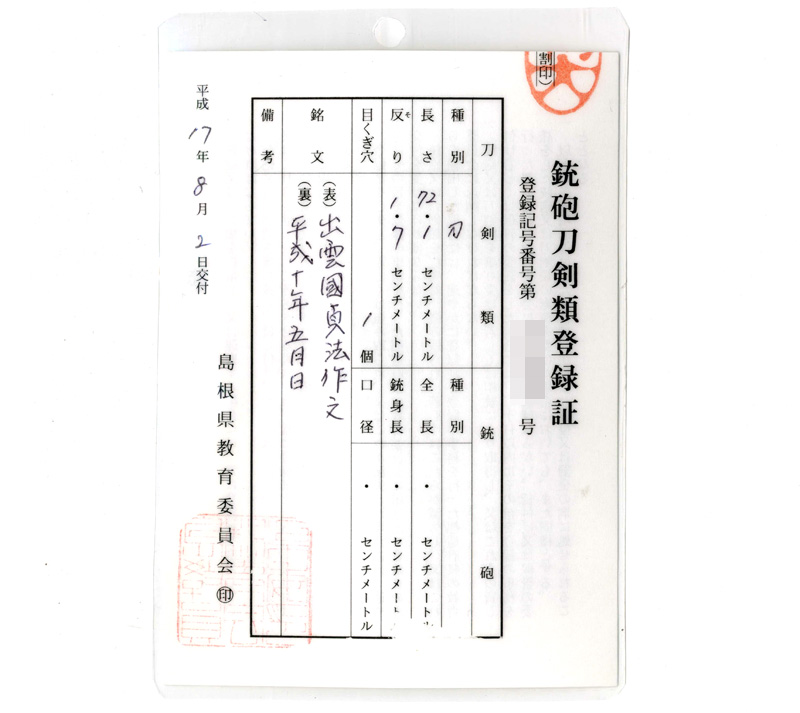 (割印)
銃砲刀剣類登録証
登録記号番号第 号
刀剣類 銃砲
種別 刀 種別
長さ 72・1 センチメートル 全長 ・ センチメートル
反り 1・7 センチメートル 銃身長 ・ センチメートル
そ
目くぎ穴 1 個 口径 ・ センチメートル
銘文 (表) 出雲國貞法作文
(裏) 平成十年五月日
備考
平成17年8月2日交付
島根県教育委員会㊞